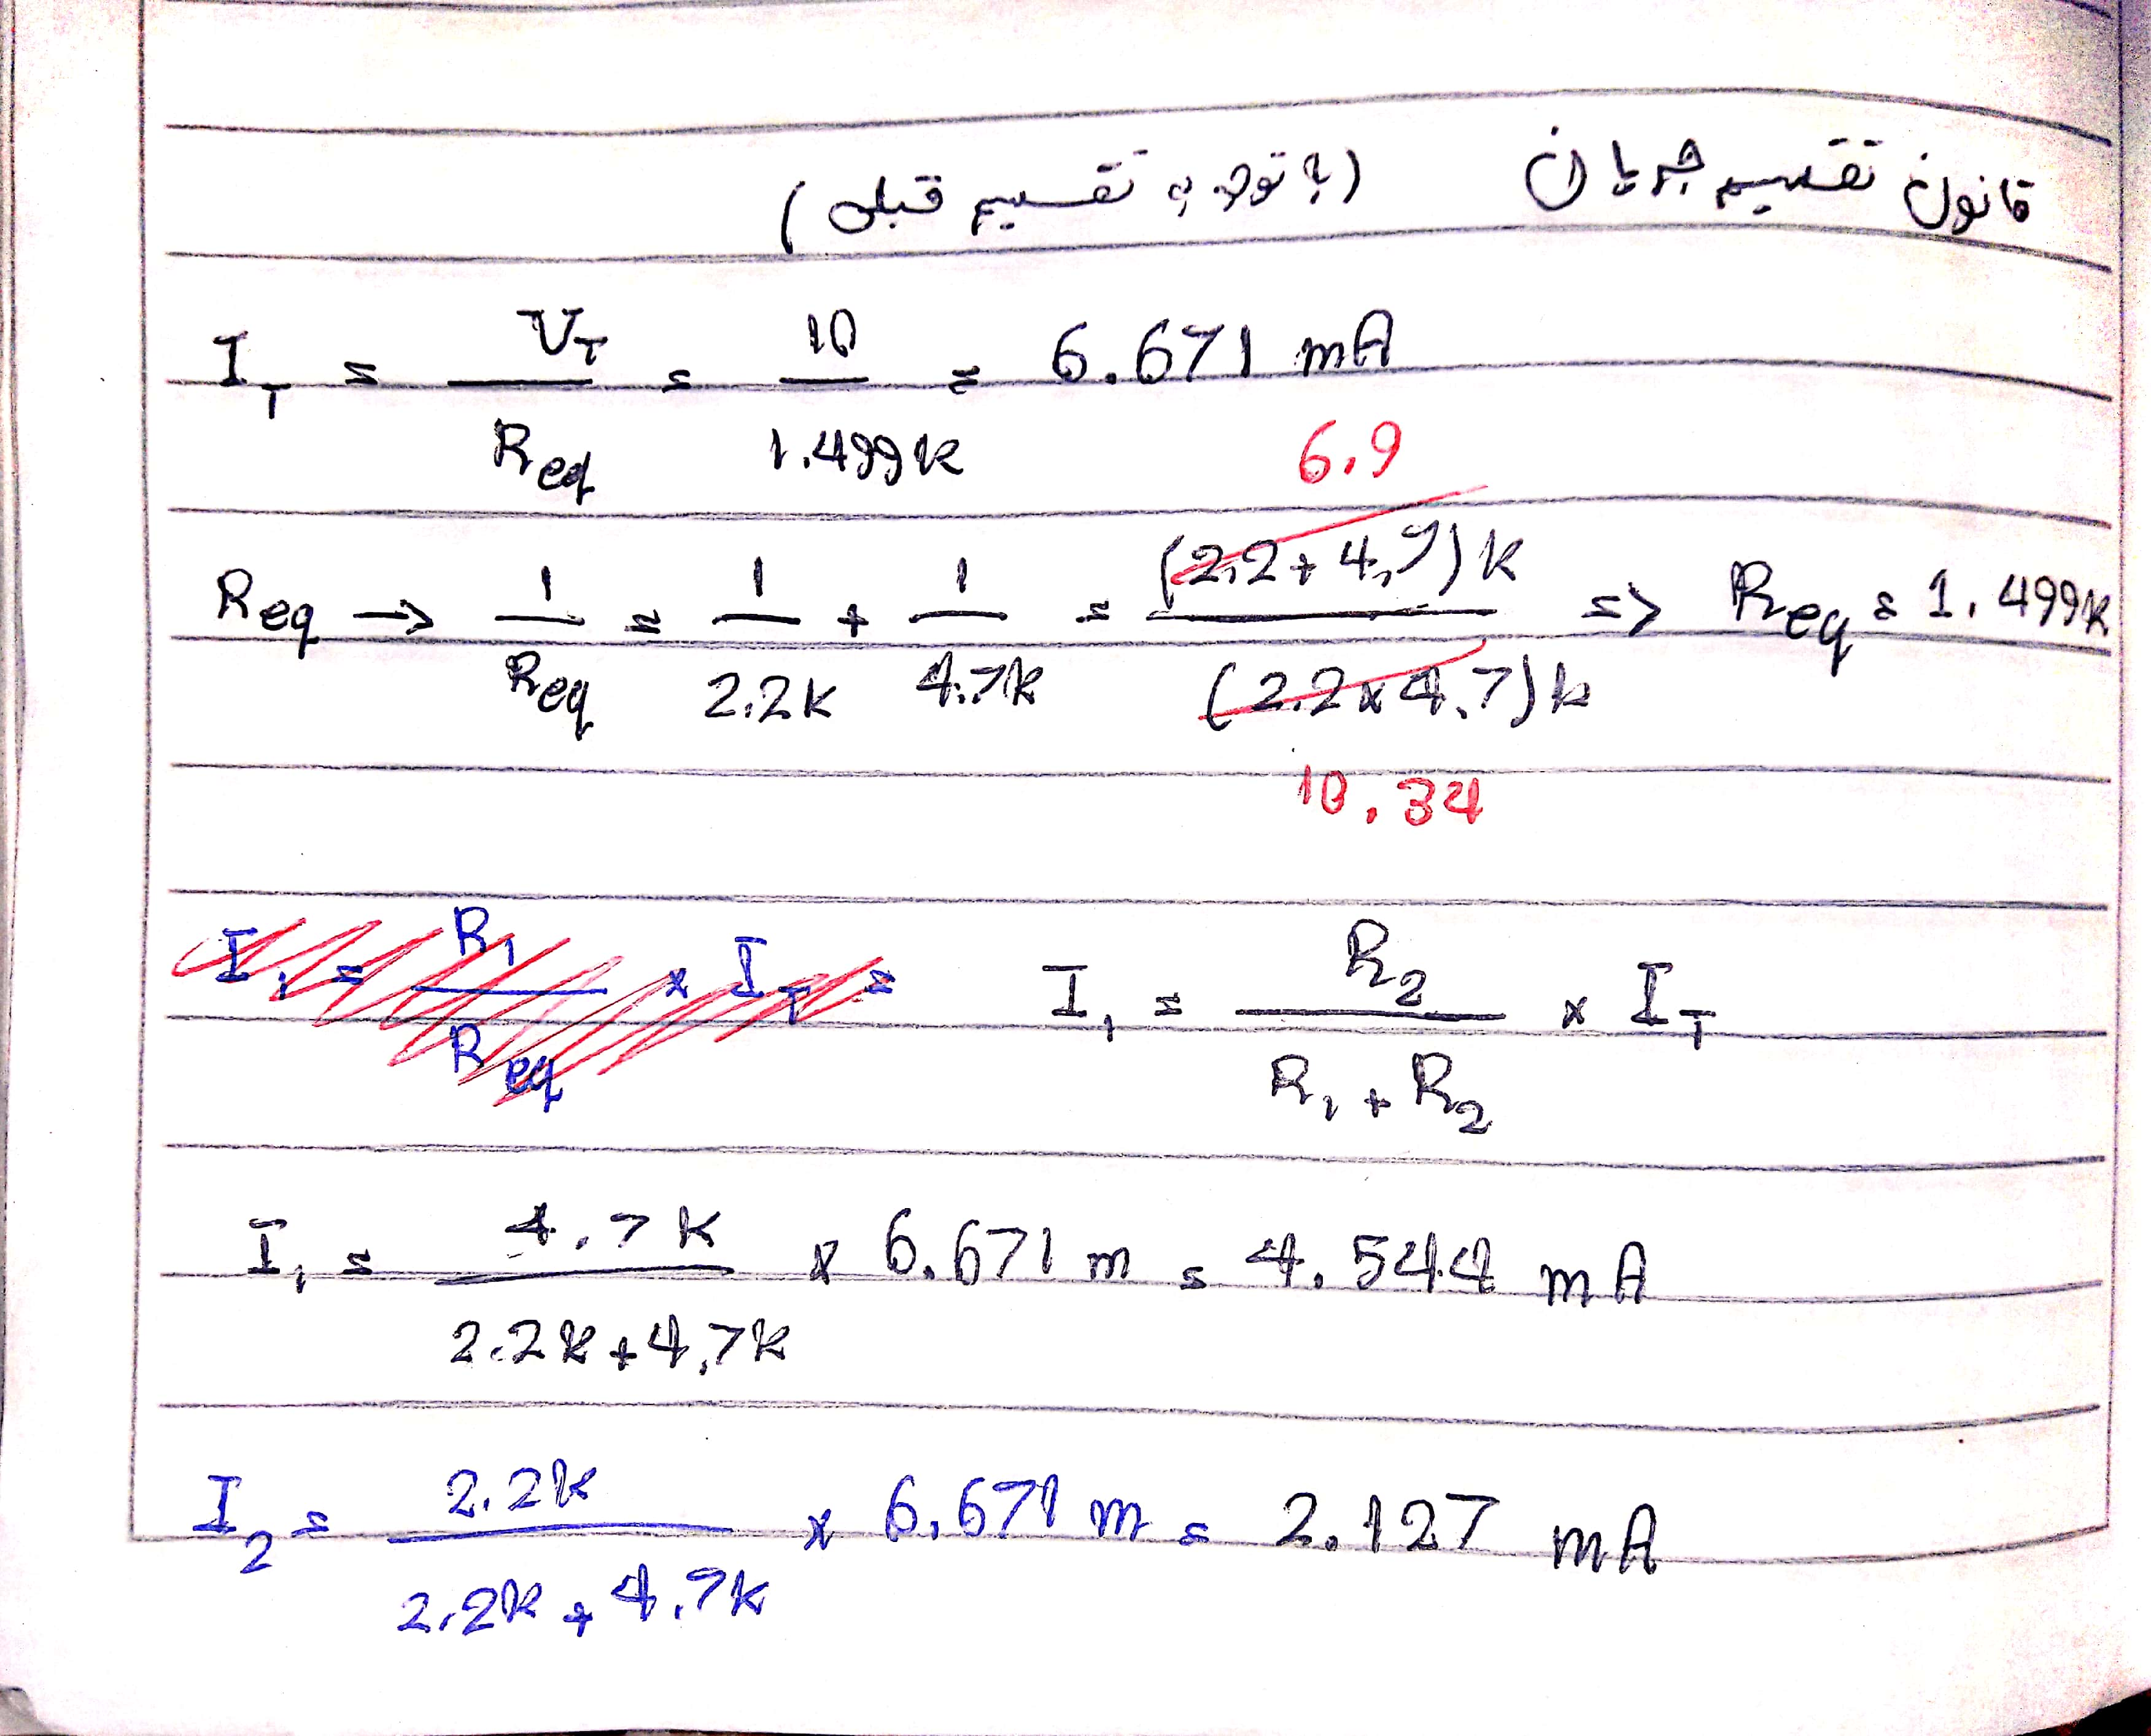 قانون تقسیم جریان (با توجه به تقسیم قبلی)
I_T = V_T / R_eq = 10 / 1.499k = 6.671 mA
6.9
R_eq → 1 / R_eq = 1 / 2.2k + 1 / 4.7k = (2.2 + 4.7)k / (2.2 x 4.7)k => R_eq = 1.499k
10.34
I_1 = R_1 / R_eq x I_T = I_1 = R_2 / R_1 + R_2 x I_T
I_1 = 4.7k / 2.2k + 4.7k x 6.671 m = 4.544 mA
I_2 = 2.2k / 2.2k + 4.7k x 6.671 m = 2.127 mA